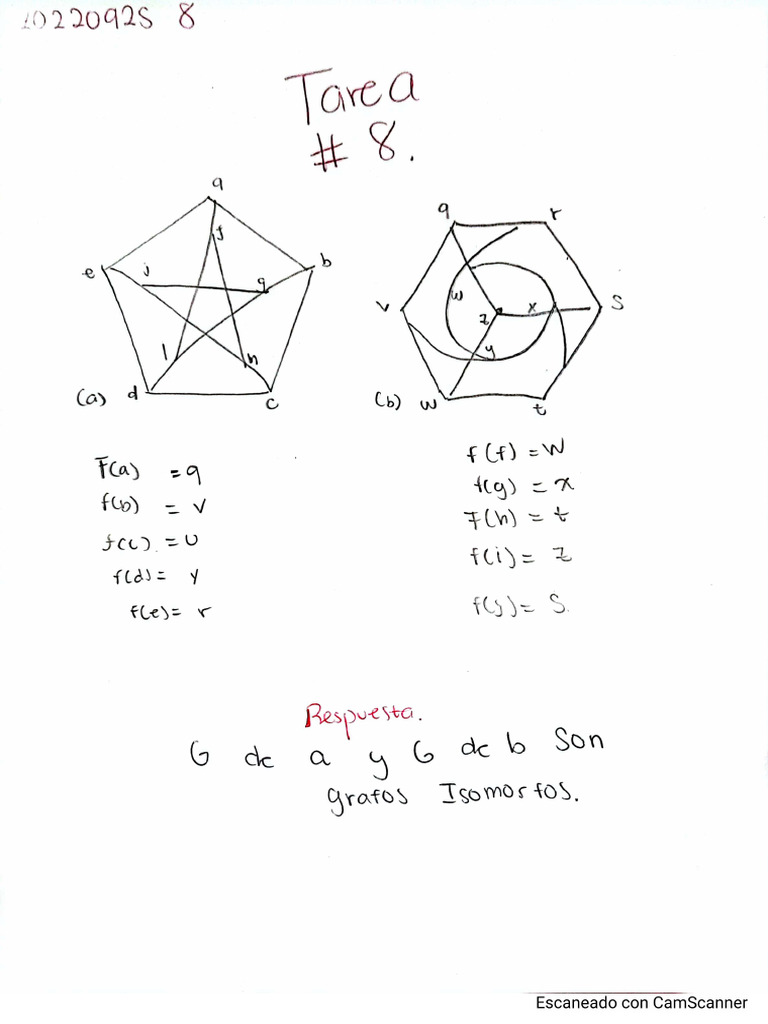 20220925 8
Tarea
# 8.
a
f
e
j
g
b
i
h
d
c
(a)
q
r
v
w
z
x
s
y
(b)
w
t
F(a) = q
f(b) = v
f(c) = u
f(d) = y
f(e) = r
f(f) = w
f(g) = x
f(h) = t
f(i) = z
f(j) = s.
Respuesta.
G de a y G de b Son
grafos Isomorfos.
Escaneado con CamScanner